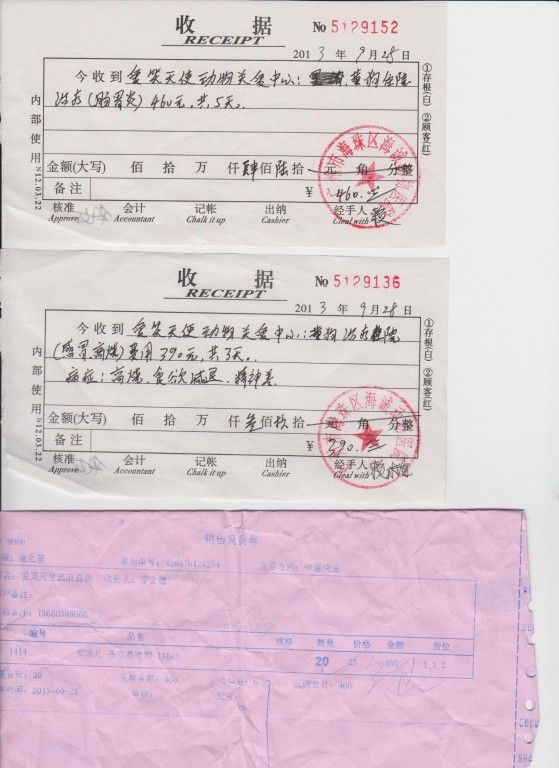 收 据 No 5129152
RECEIPT
2013 年 9 月 28 日
今收到 爱笑天使动物关爱中心: 黄狗住院
治疗 (肠胃炎) 460元, 共5天。
金额(大写) 佰 拾 万 仟 肆 佰 陆 拾 元 角 分整
备 注 ¥ 460.
核准 会计 记帐 出纳 经手人
Approve Accountant Chalk it up Cashier Cleal with
内部使用 N12.03.22
①存根(白) ②顾客(红)
收 据 No 5129136
RECEIPT
2013 年 9 月 28 日
今收到 爱笑天使动物关爱中心: 黄狗治疗住院
(肠胃, 高烧) 费用 390元, 共3天。
病症: 高烧, 食欲减退, 精神差
金额(大写) 佰 拾 万 仟 叁 佰 玖 拾 元 角 分整
备 注 ¥ 390.
核准 会计 记帐 出纳 经手人
Approve Accountant Chalk it up Cashier Cleal with
内部使用 N12.03.22
①存根(白) ②顾客(红)
销售发货单
9960
宠之星 中通快递
收件人:
13660388666
编号 品名 规格 数量 价格 金额 货位
1414 110ml 20 23 460 1,3,2
20 460 460
时间: 2013-09-23